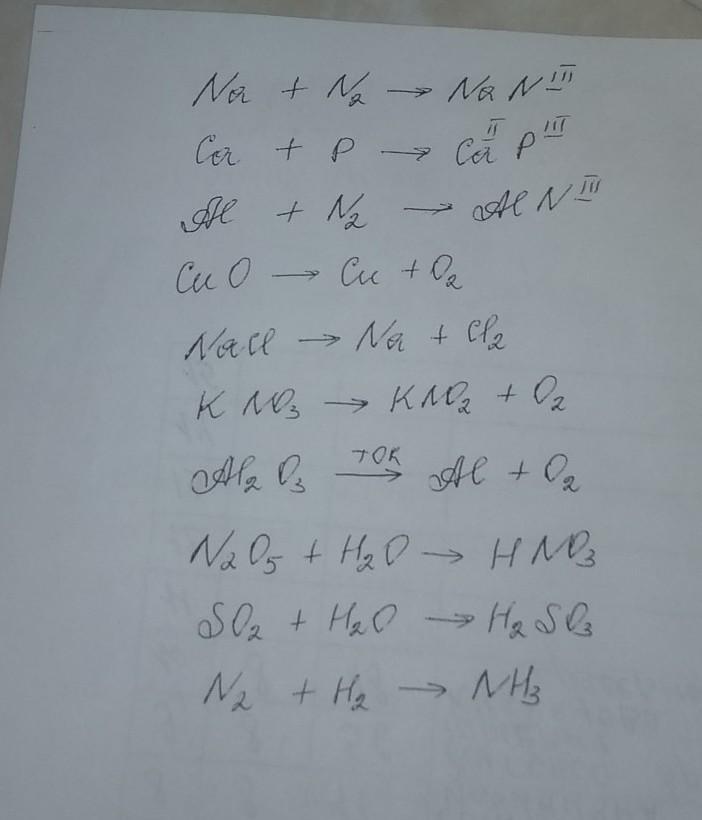 Na + N₂ → Na N^III
Ca + P → Ca^II P^III
Al + N₂ → Al N^III
CuO → Cu + O₂
NaCl → Na + Cl₂
K NO₃ → KNO₂ + O₂
Al₂ O₃ —ток→ Al + O₂
N₂O₅ + H₂O → H NO₃
SO₂ + H₂O → H₂ SO₃
N₂ + H₂ → NH₃